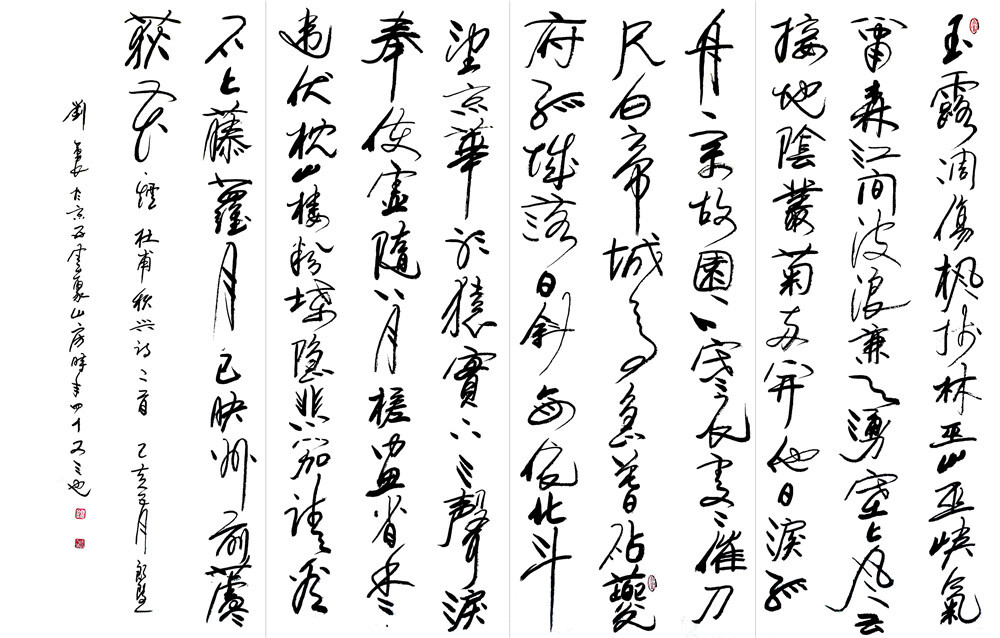 玉露凋傷楓樹林巫山巫峽氣
蕭森江間波浪兼天湧塞上風雲
接地陰叢菊兩開他日淚孤
舟一系故園心寒衣處處催刀
尺白帝城高急暮砧夔
府孤城落日斜每依北斗
望京華聽猿實下三聲淚
奉使虛隨八月槎畫省香爐
違伏枕山樓粉堞隱悲笳請看
石上藤蘿月已映洲前蘆
荻花 杜甫秋興詩二首 乙亥五月
劉 山房時年四十又三也